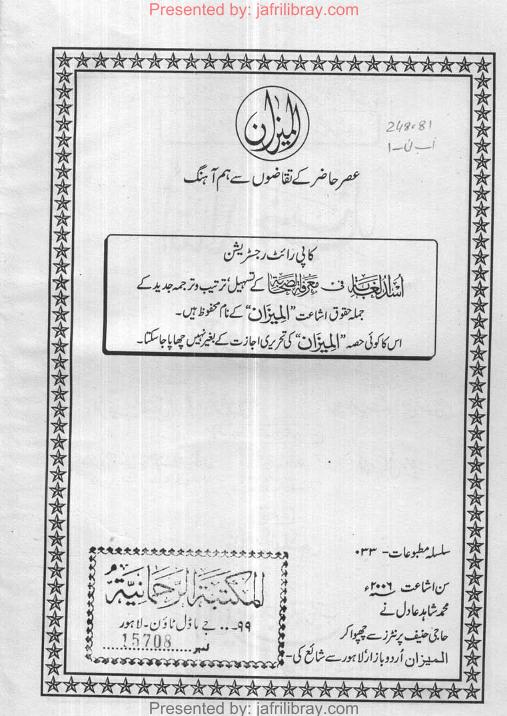 Presented by: jafrilibray.com
المیزان
248.81
عصر حاضر کے تقاضوں سے ہم آہنگ
کاپی رائٹ رجسٹریشن
اسد الغابہ فی معرفۃ الصحابۃ کے تسہیل، ترتیب و ترجمہ جدید کے
جملہ حقوق اشاعت "المیزان" کے نام محفوظ ہیں۔
اس کا کوئی حصہ "المیزان" کی تحریری اجازت کے بغیر نہیں چھاپا جاسکتا۔
سلسلہ مطبوعات - ۰۳۳
سن اشاعت ۲۰۰۶ء
محمد شاہد عادل نے
حاجی حنیف پرنٹرز سے چھپوا کر
المیزان اُردو بازار لاہور سے شائع کی۔
المکتبۃ الرحمانیۃ
۹۹... جے ماڈل ٹاؤن۔ لاہور
نمبر 15708
Presented by: jafrilibray.com